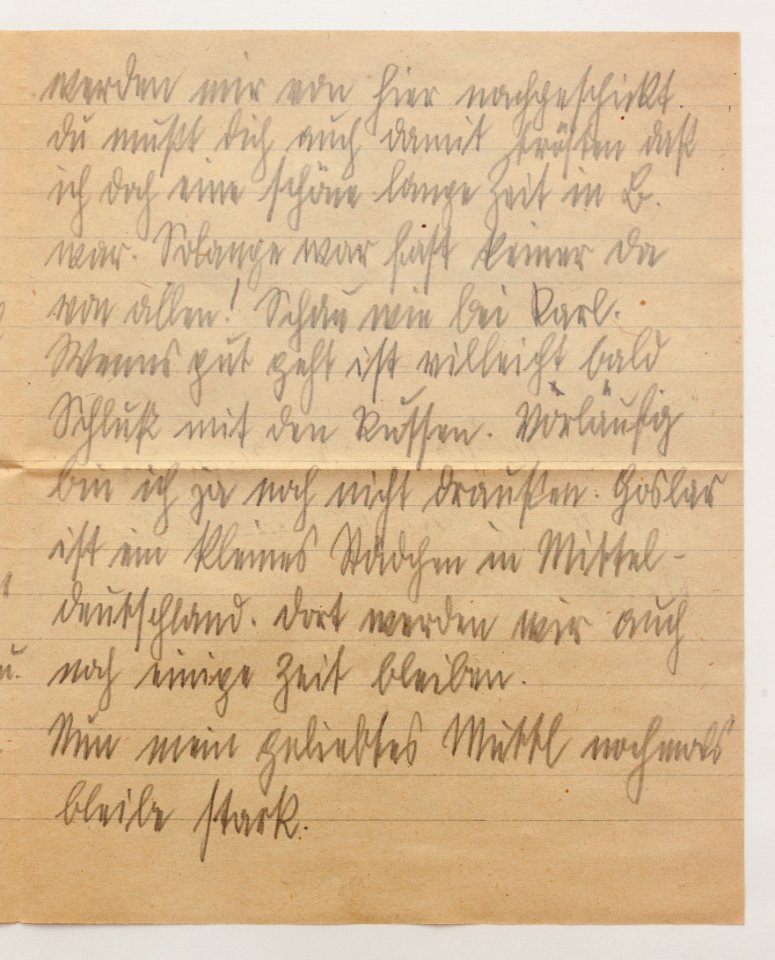 werden mir von hier nachgeschickt.
Du mußt dich auch damit trösten daß
ich doch eine schöne lange Zeit in B.
war. Solange war fast keiner da
von allen! Schau wie bei Karl.
Wenns gut geht ist villeicht bald
Schluß mit den Russen. Vorläufig
bin ich ja noch nicht draußen. Goslar
ist ein kleines Städchen in Mittel-
deutschland. Dort werden wir auch
noch einige Zeit bleiben.
Nun mein geliebtes Muttl nochmals
bleibe stark.